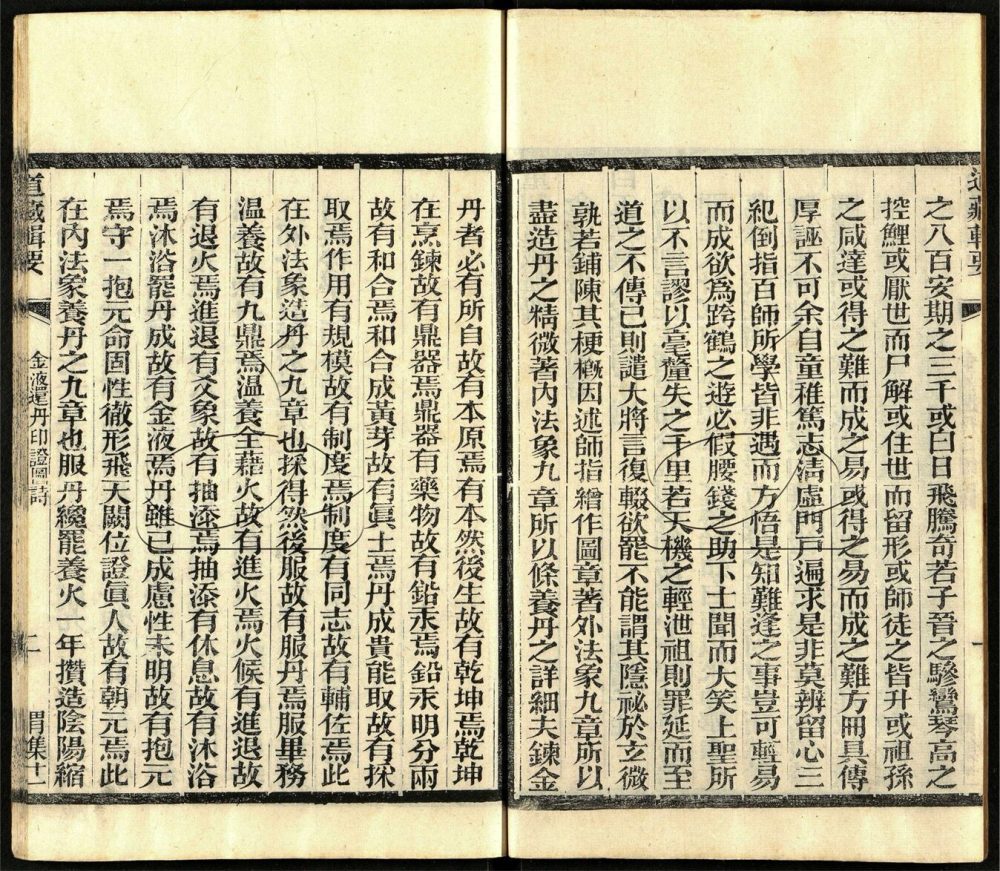 道藏輯要
之八百安期之三千或白日飛騰奇若子晉之驂鸞琴高之
控鯉或厭世而尸解或住世而留形或師徒之皆升或祖孫
之咸達或得之難而成之易或得之易而成之難方冊具傳
厚誣不可余自童稚篤志清虛門戸遍求是非莫辨留心三
紀倒指百師所學皆非遇而方悟是知難逢之事豈可輕易
而成欲爲跨鶴之遊必假腰錢之助下士聞而大笑上聖所
以不言謬以毫釐失之千里若天機之輕泄祖則罪延而至
道之不傳已則譴大將言復輟欲罷不能謂其隱祕於玄微
孰若鋪陳其梗概因述師指繪作圖章著外法象九章所以
盡造丹之精微著内法象九章所以條養丹之詳細夫鍊金
丹者必有所自故有本原焉有本然後生故有乾坤焉乾坤
在烹鍊故有鼎器焉鼎器有藥物故有鉛汞焉鉛汞明分兩
故有和合焉和合成黃芽故有眞土焉丹成貴能取故有採
取焉作用有規模故有制度焉制度有同志故有輔佐焉此
在外法象造丹之九章也採得然後服故有服丹焉服畢務
温養故有九鼎焉温養全藉火故有進火焉火候有進退故
有退火焉進退有爻象故有抽添焉抽添有休息故有沐浴
焉沐浴罷丹成故有金液焉丹雖已成慮性未明故有抱元
焉守一抱元命固性徹形飛天闕位證眞人故有朝元焉此
在内法象養丹之九章也服丹纔罷養火一年攢造陰陽縮
道藏輯要
金液還丹印證圖詩
二
胃集十一